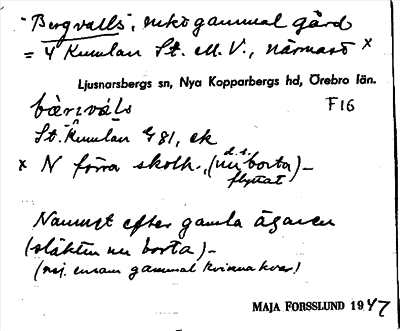 "Bergvalls", enkö gammal gård
= 4 Kumlan St. M. V., närmast x
Ljusnarsbergs sn, Nya Kopparbergs hd, Örebro län.
bærvals F16
St. Kumlan 4 81, ek
d.s.
x N förra skolh., (nu borta) –
flyttat
Namnet efter gamla ägaren
(släkten nu borta) –
(nj. ensam gammal kvinna kvar)
MAJA FORSSLUND 1947